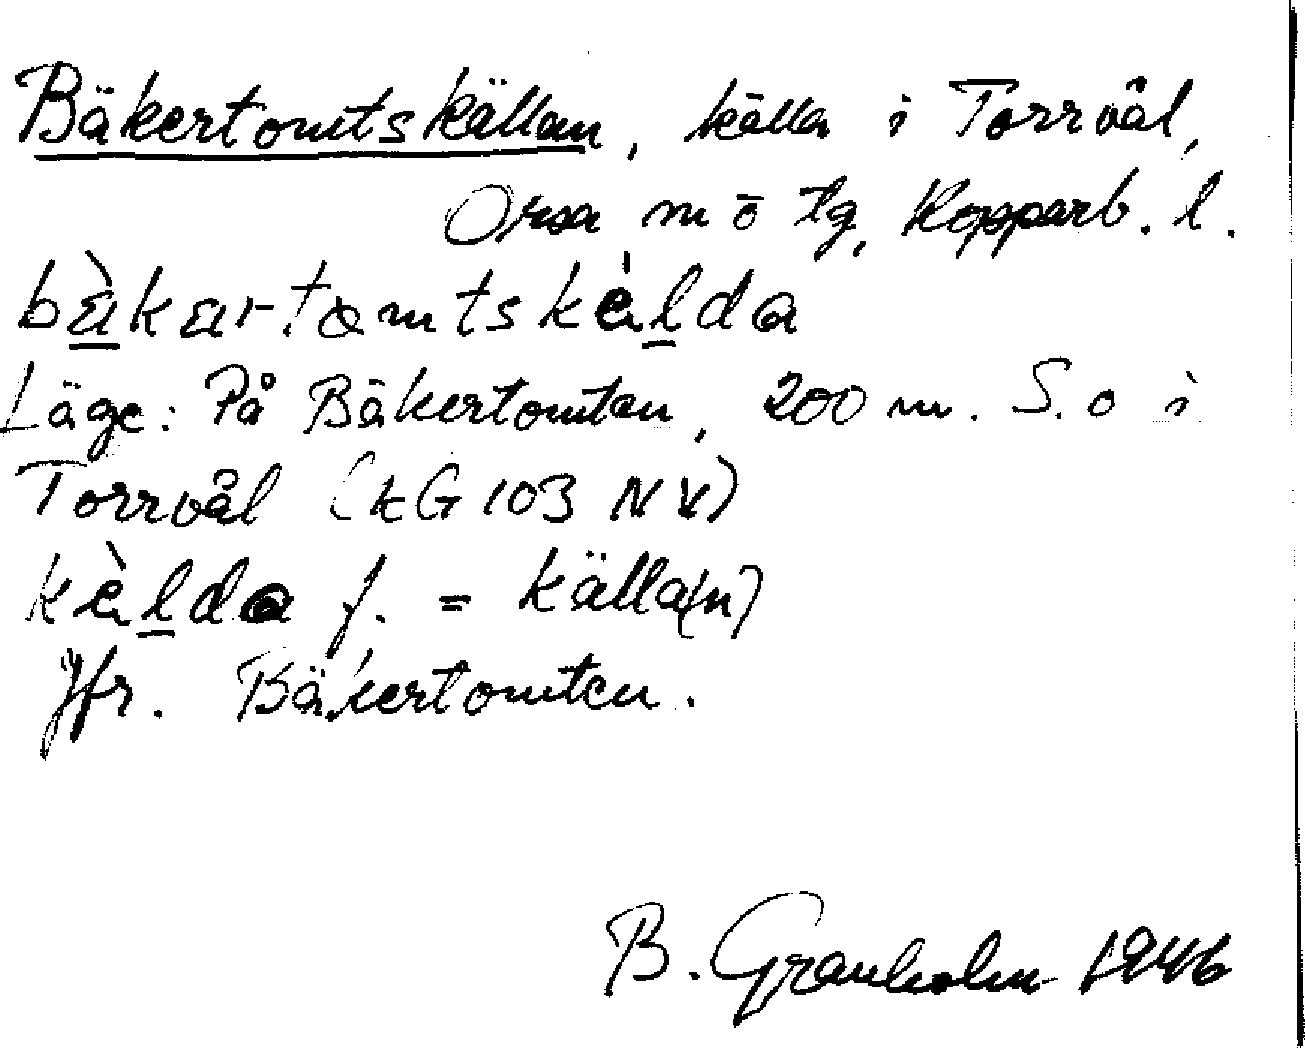 Bäkertomtskällan, källa i Torrvål,
Orsa m o tg, Kopparb. l.
bä̀kartomtskä̀lda
Läge: På Bäkertomten, 200 m. S.o i
Torrvål (kG 103 NV)
kä̀lda f. = källa(n)
Jfr. Bäkertomten.
B. Granholm 1946